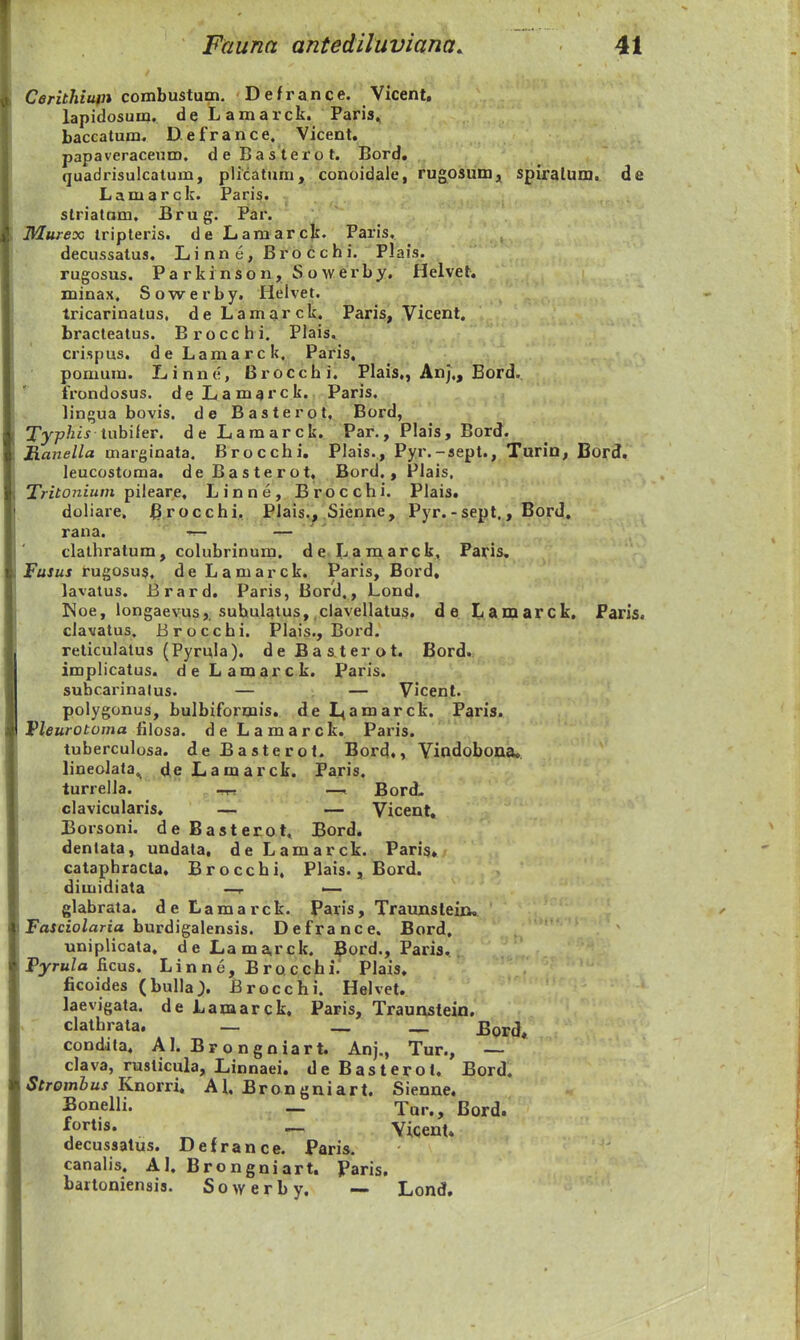 Fauna antediluviana. 41
Cerithium combustum. Defrance. Vicent.
lapidosum. de Lamarck. Paris.
baccatum. Defrance. Vicent.
papaveraceum. de Basterot. Bord.
quadrisulcatum, plicatum, conoidale, rugosum, spiratum. de
Lamarck. Paris.
striatum. Brug. Par.
Murex tripteris. de Lamarck. Paris.
decussatus. Linné, Brocchi. Plais.
rugosus. Parkinson, Sowerby. Helvet.
minax. Sowerby. Helvet.
tricarinatus. de Lamarck. Paris, Vicent.
bracteatus. Brocchi. Plais.
crispus. de Lamarck. Paris.
pomum. Linné, Brocchi. Plais., Anj., Bord.
frondosus. de Lamarck. Paris.
lingua bovis. de Basterot. Bord,
Typhis tubifer. de Lamarck. Par., Plais, Bord.
Ranella marginata. Brocchi. Plais., Pyr.-sept., Turin, Bord.
leucostoma. de Basterot. Bord., Plais.
Tritonium pileare. Linné, Brocchi. Plais.
doliare. Brocchi. Plais., Sienne, Pyr.-sept., Bord.
rana. — —
clathratum, colubrinum. de Lamarck. Paris.
Fusus rugosus. de Lamarck. Paris, Bord.
lavatus. Brard. Paris, Bord., Lond.
Noe, longaevus, subulatus, clavellatus. de Lamarck. Paris.
clavatus. Brocchi. Plais., Bord.
reticulatus (Pyrula). de Basterot. Bord.
implicatus. de Lamarck. Paris.
subcarinatus. — — Vicent.
polygonus, bulbiformis. de Lamarck. Paris.
Pleurotoma filosa. de Lamarck. Paris.
tuberculosa. de Basterot. Bord., Vindobona.
lineolata. de Lamarck. Paris.
turrella. — — Bord.
clavicularis. — — Vicent.
Borsoni. de Basterot. Bord.
dentata, undata. de Lamarck. Paris.
cataphracta. Brocchi. Plais., Bord.
dimidiata — —
glabrata. de Lamarck. Paris, Traunstein.
Fasciolaria burdigalensis. Defrance. Bord.
uniplicata. de Lamarck. Bord., Paris.
Pyrula ficus. Linné, Brocchi. Plais.
ficoides (bulla). Brocchi. Helvet.
laevigata. de Lamarck. Paris, Traunstein.
clathrata. — — — Bord.
condita. Al. Brongniart. Anj., Tur., —
clava, rusticula, Linnaei. de Basterot. Bord.
Strombus Knorri. Al. Brongniart. Sienne.
Bonelli. — Tur., Bord.
fortis. — Vicent.
decussatus. Defrance. Paris.
canalis. Al. Brongniart. Paris.
bartoniensis. Sowerby. — Lond.